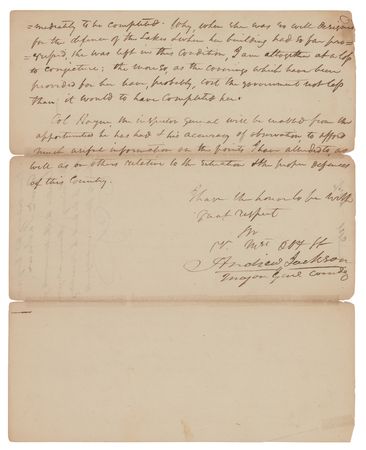 =mediately to be completed. Why, when she was so well designed
for the defence of the Lakes & when her building had so far pro=
=gressed, she was left in this condition, I am altogether at a loss
to conjecture; the more so as the coverings which have been
provided for her have, probably, cost the government not less
than it would to have completed her.
Col Hayne, the inspector general will be enabled from the
opportunities he has had & his accuracy of observation, to afford
much useful information on the points I have alluded to as
well as on others relative to the situation & the proper defences
of this Country.
I have the honor to be with
great respect
Sir
Yr Mst Obt St
Andrew Jackson
Major Genl Comdg